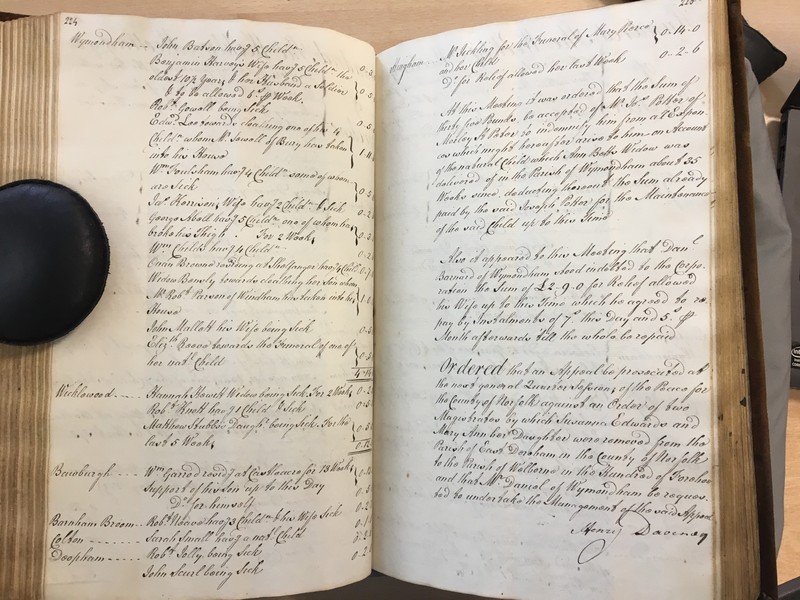 224
Wymondham -- John Batson havg 5 Childn
Benjamin Harveys Wife havg 5 Childn the
oldest 10½ Years & her Husband a Soldier
& to be allowed 4s ⅌ Week
Robt Gowell being Sick
Edwd Loo towards cloathing one of his 4
Childn whom Mr Sewell of Bury has taken
into his House
Wm Foulsham havg 4 Childn some of whom
are Sick
Jas Harrison, Wife havg 2 Childn & Sick
George Aboll havg 5 Childn one of whom has
broke his Thigh For 2 Weeks
Wm Childs havg 4 Childn
Onan Broome residing at Shelfanger havg 4 Child
Widow Bensly towards cloathing her Son whom
Mr Robt Parson of Windham has taken into his
House
John Mallett his Wife being Sick
Elizth Reeve towards the Funeral of one of
her natl Child
Wicklewood ---- Hannah Howett Widow being Sick For 2 Weeks
Robt Knott havg 1 Child & Sick
Matthew Stubbs Daughr being Sick For the
last 5 Weeks
Bawburgh ---- Wm Garrod residg at Castleacre for 13 Weeks
Support of his Son up to this Day
Do for himself
Barnham Broom -- Robt Neave havg 3 Childn & his Wife Sick
Colton ------ Sarah Small havg a natl Child
Deopham ---- Robt Jolly being Sick
John Scurl being Sick
225
Hingham -- Mr Sickling for the Funeral of Mary Pierce
and her Child 0-14-0
Do for Relief allowed her last Week 0-2-6
At this Meeting it was ordered that the Sum of
thirty five Pounds be accepted of Mr Jos. Potter of
Morley St Peter to indemnify him from all Expen-
ces which might hereafter arise to him on Account
of the natural Child which Ann Betts Widow was
delivered of in the Parish of Wymondham about 35
Weeks since, deducting thereout the Sum already
paid by the said Joseph Potter for the Maintenance
of the said Child up to this Time
Also it appeared to this Meeting that Danl
Barnard of Wymondham stood indebted to the Corpo-
ration the Sum of £2-9-0 for Relief allowed
his Wife up to this Time which he agreed to re-
pay by Instalments of 7s this Day and 5s ⅌
Month afterwards till the whole be repaid
Ordered that an Appeal be prosecuted at
the next general Quarter Sessions of the Peace for
the County of Norfolk against an Order of two
Magistrates by which Susanna Edwards and
Mary Ann her Daughter were removed from the
Parish of East Dereham in the County of Norfolk
to the Parish of Welborne in the Hundred of Forehoe
and that Mr Daniel of Wymondham be reques-
ted to undertake the Management of the said Appeal
Henry Daveney